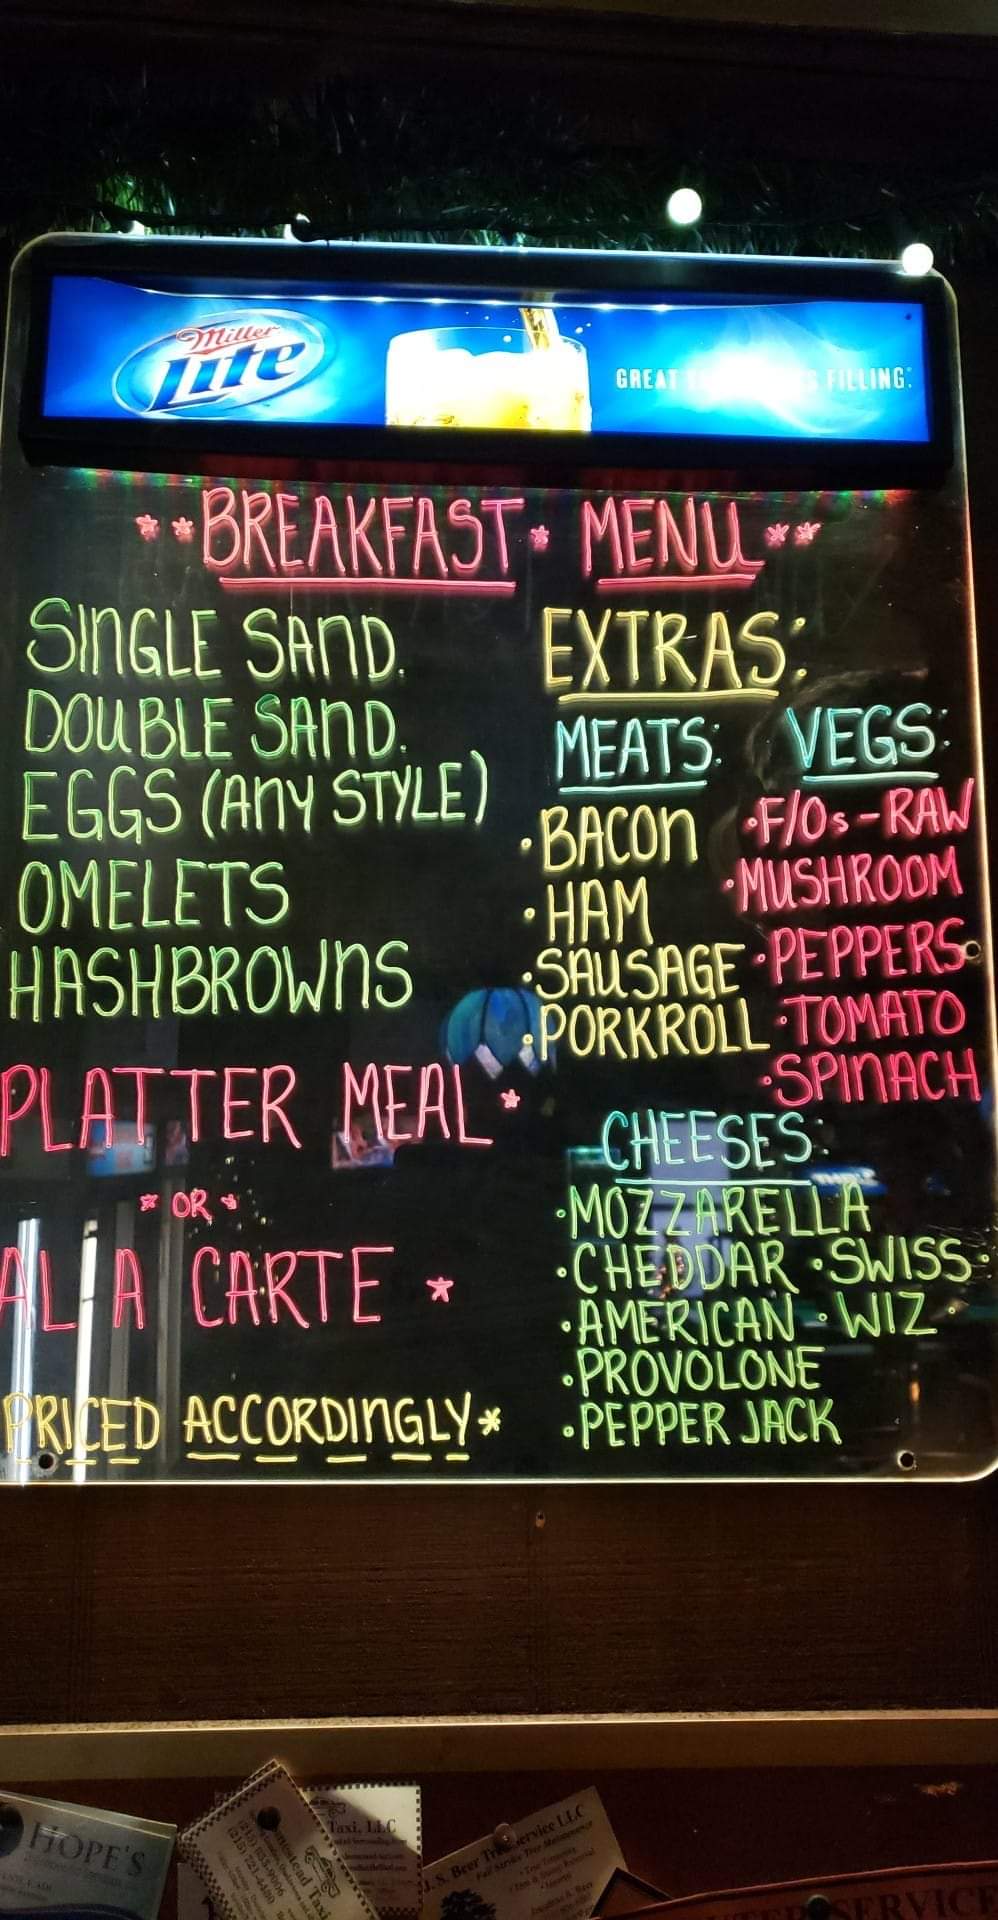 Miller
Lite
GREAT FILLING.
**BREAKFAST * MENU**
SINGLE SAND.
DOUBLE SAND.
EGGS (ANY STYLE)
OMELETS
HASHBROWNS
PLATTER MEAL *
* OR *
AL A CARTE *
PRICED ACCORDINGLY *
EXTRAS:
MEATS:
• BACON
• HAM
• SAUSAGE
• PORKROLL
VEGS:
• F/Os - RAW
• MUSHROOM
• PEPPERS
• TOMATO
• SPINACH
CHEESES:
• MOZZARELLA
• CHEDDAR • SWISS •
• AMERICAN • WIZ •
• PROVOLONE
• PEPPER JACK
HOPE'S
Taxi, LLC
Taxi
U.S. Beer Service LLC
SERVICE